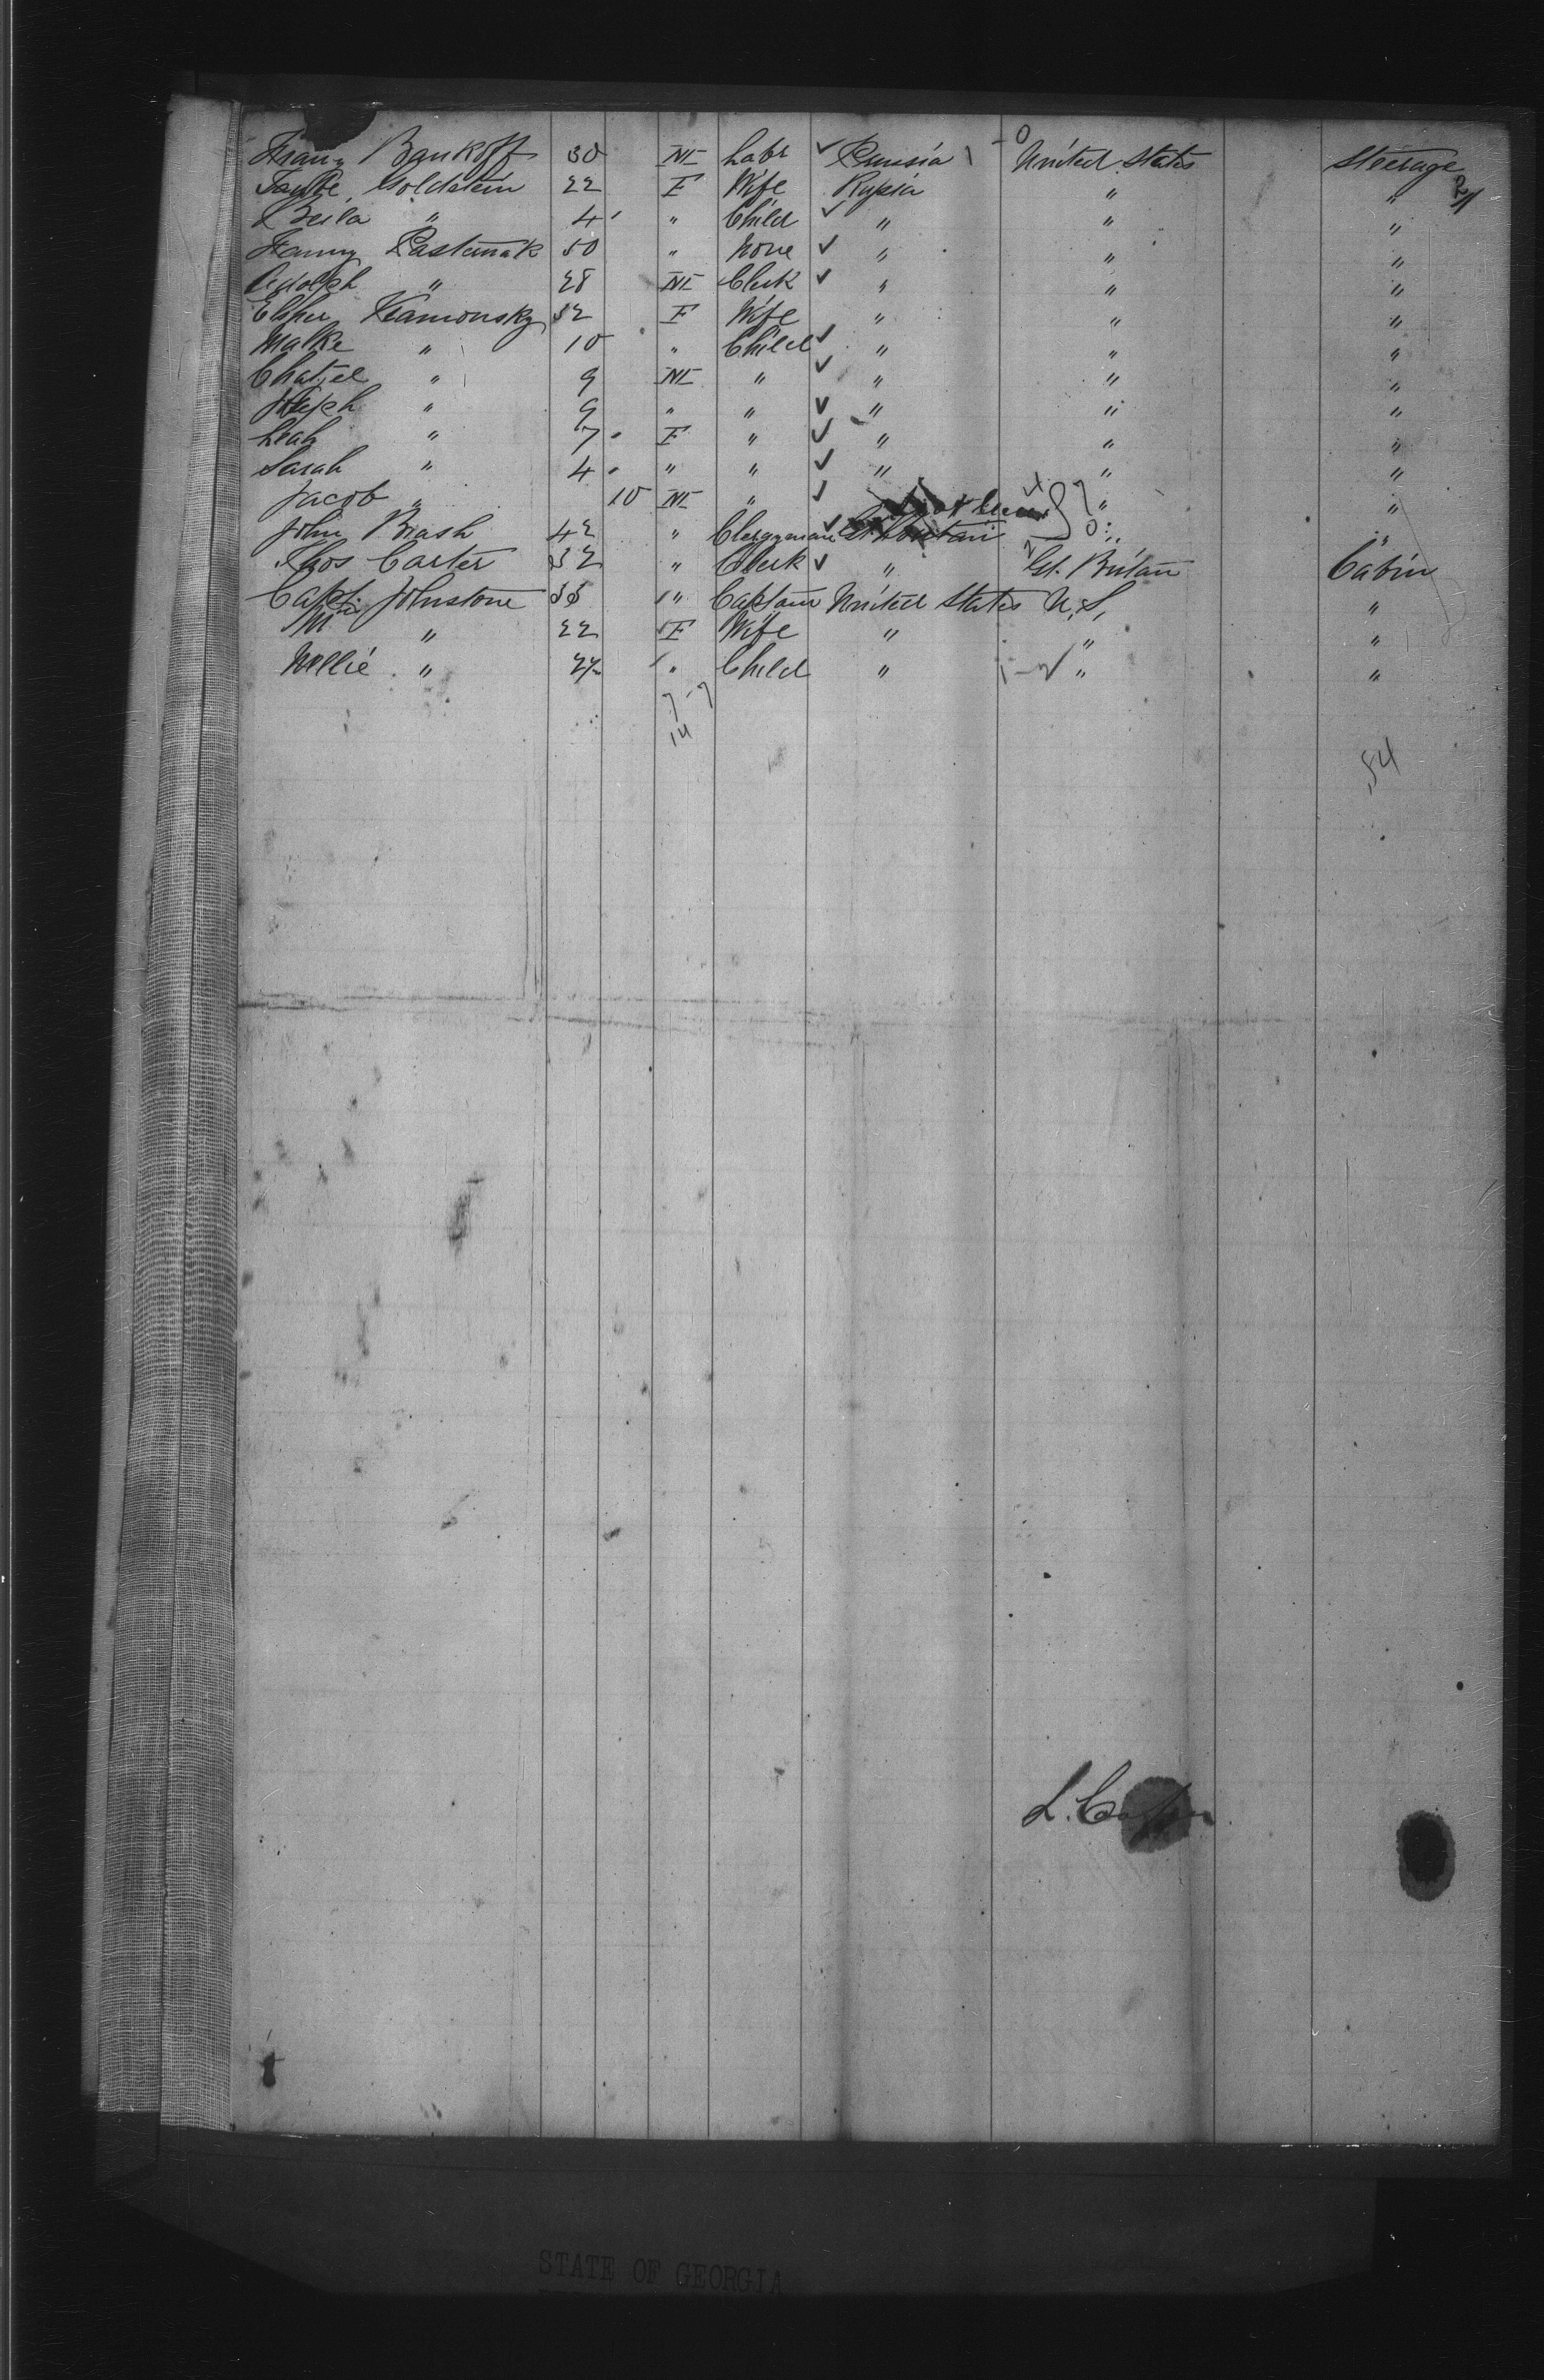 Franz Bankoff 30 M Labr ✓ Prussia \ -0 United States Steerage
Taube Goldstein 22 F Wife Russia " " 21
Beila " 4 " Child ✓ " " "
Fanny Pasternak 50 " None ✓ " " "
Adolph " 28 M Clerk ✓ " " "
Esther Kamonsky 32 F Wife " " "
Malke " 10 " Child ✓ " " "
Chatzel " 9 M " ✓ " " "
Joseph " 9 " " ✓ " " "
Leah " 7 F " ✓ " " "
Sarah " 4 " " ✓ " " "
Jacob " 10 M " ✓ " "
John Brash 42 " Clergyman ✓ Gt. Britain " "
Thos Carter 32 " Clerk ✓ " Gt. Britain Cabin
Capt. Johnstone 35 " Captain United States U.S. "
Mrs " 22 F Wife " " "
Nellie " 2½ " Child " " "
7-7
14
54
L.
STATE OF GEORGIA